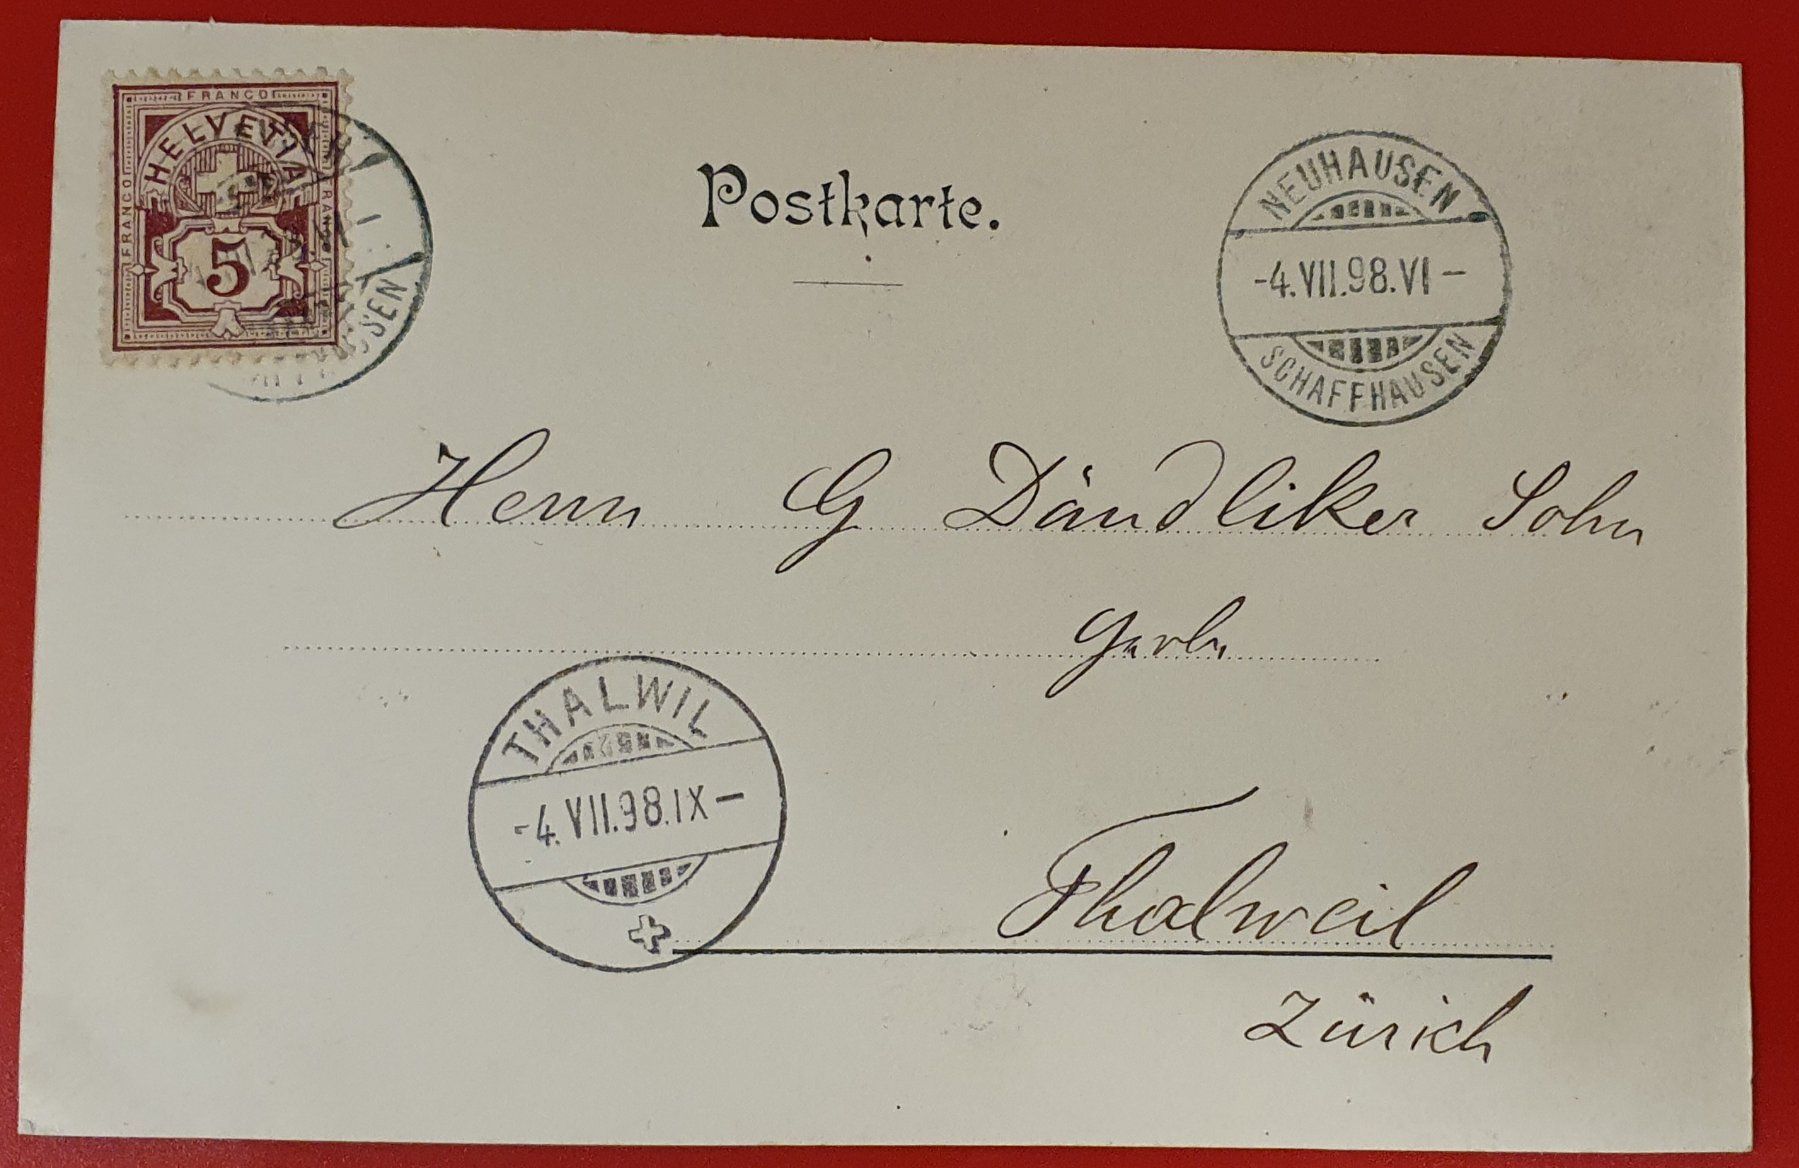 FRANCO
FRANCO
HELVETIA
5
Postkarte.
NEUHAUSEN
-4.VII.98.VI-
SCHAFFHAUSEN
Herrn G Dändliker Sohn
Gerber
THALWIL
-4.VII.98.IX-
Thalweil
Zürich